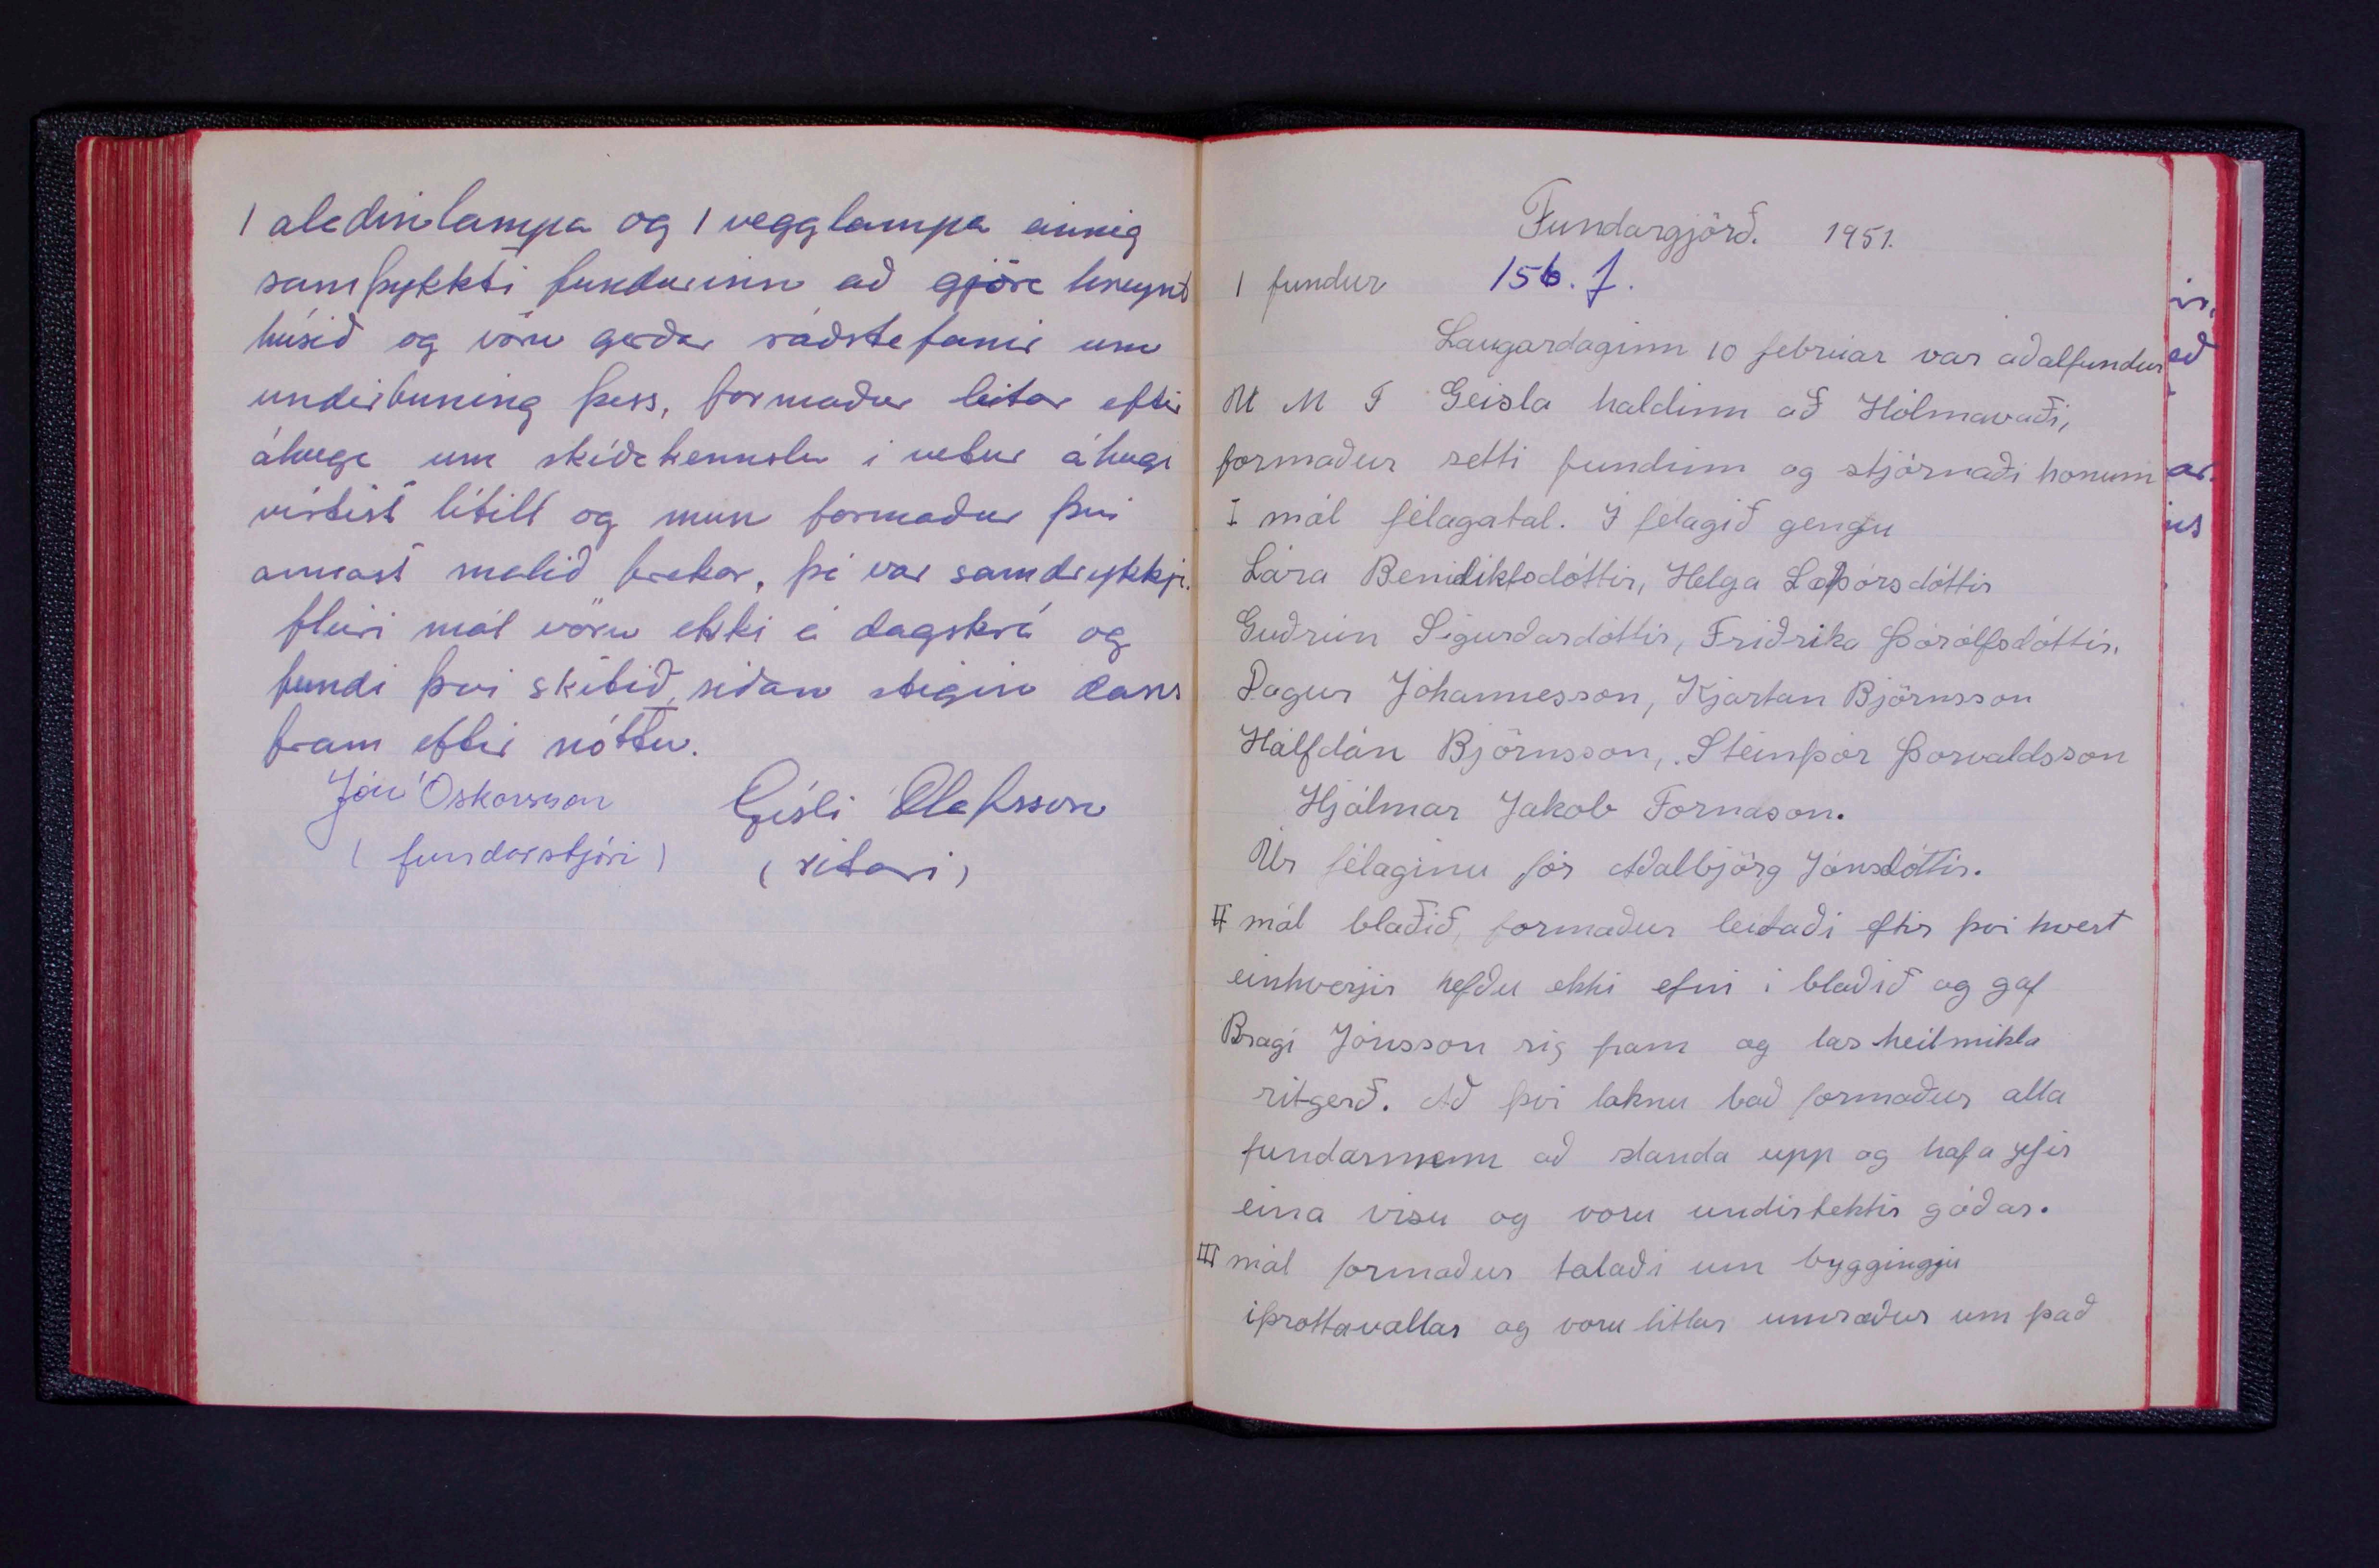 1 aledinlampa og 1 vegglampa einnig
samþykkti fundurinn að gjöra hreint
húsið og vöru gerðar ráðstefanir um
undirbuning þess, formaður leitar eftir
áhuga um skíðakennslu i vetur áhugi
virtist lítill og mun formaður þvi
annast malið frekar, þá var samdrykkja.
fleiri mál vöru ekki á dagskrá og
fundi þvi slitið, siðan stigin dans
fram eftir nóttu.
Jón Óskarsson Gísli Olafsson
(fundarstjóri) (ritari)
Fundargjörð. 1951.
1 fundur 156. f.
Laugardaginn 10 febrúar var aðalfundur
U M F Geisla haldinn að Hólmavaði,
formaður setti fundinn og stjórnaði honum
I mál félagatal. Í félagið gengu
Lára Benidiktsdóttir, Helga Laþórsdóttir
Guðrún Sigurðardóttir, Friðrika Þórólfsdóttir.
Dagur Jóhannesson, Kjartan Björnsson
Hálfdán Björnsson, Steinþór Þorvaldsson
Hjálmar Jakob Fornason.
Úr félaginu fór Aðalbjörg Jónsdóttir.
II mál blaðið, formaður leitaði eftir þvi hvert
einhverjir hefðu ekki efni i blaðið og gaf
Bragi Jónsson sig fram og las heilmikla
ritgerð. Að þvi loknu bað formaður alla
fundarmenn að standa upp og hafa yfir
eina visu og voru undirtektir góðar.
III mál formaður talaði um byggingju
iþrottavallar og voru litlar umræður um það